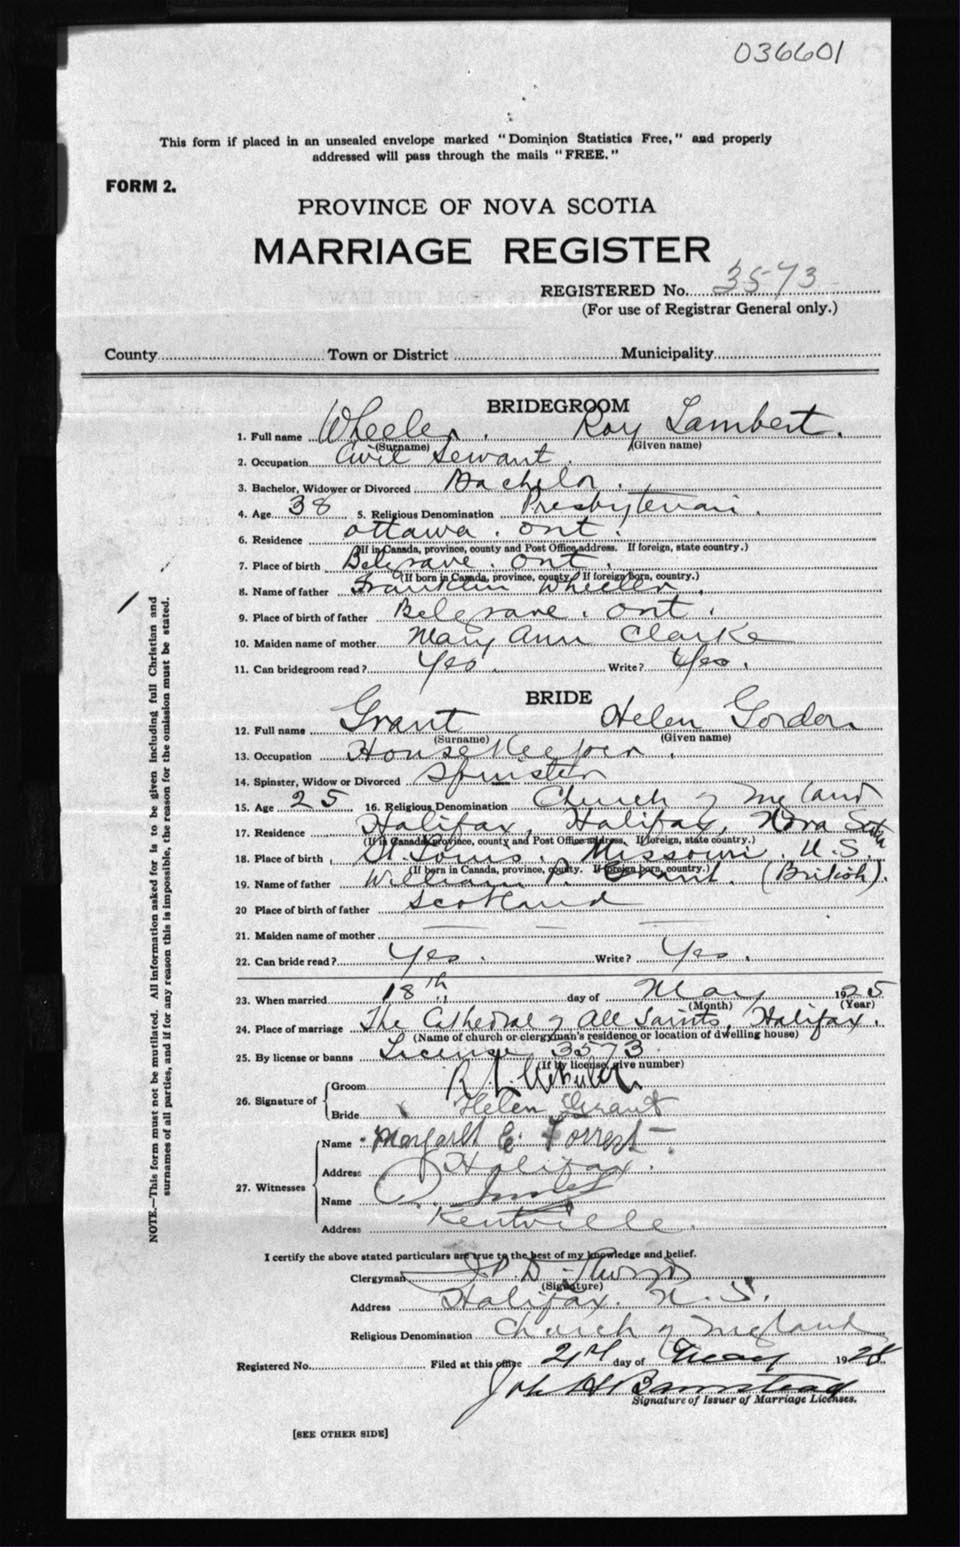 036601
This form if placed in an unsealed envelope marked "Dominion Statistics Free," and properly
addressed will pass through the mails "FREE."
FORM 2.
PROVINCE OF NOVA SCOTIA
MARRIAGE REGISTER
REGISTERED No. 3573
(For use of Registrar General only.)
County Town or District Municipality
BRIDEGROOM
1. Full name Wheeler. Roy Lambert.
(Surname) (Given name)
2. Occupation Civil Servant.
3. Bachelor, Widower or Divorced Bachelor.
4. Age 38 5. Religious Denomination Presbyterian.
6. Residence Ottawa. Ont.
(If in Canada, province, county and Post Office address. If foreign, state country.)
7. Place of birth Belgrave. Ont.
(If born in Canada, province, county. If foreign born, country.)
8. Name of father Franklin Wheeler.
9. Place of birth of father Belgrave. Ont.
10. Maiden name of mother Mary Ann Clarke
11. Can bridegroom read? Yes. Write? Yes.
BRIDE
12. Full name Grant Helen Gordon
(Surname) (Given name)
13. Occupation House Keeper.
14. Spinster, Widow or Divorced Spinster
15. Age 25 16. Religious Denomination Church of England
17. Residence Halifax, Halifax, Nova Scotia
(If in Canada, province, county and Post Office address. If foreign, state country.)
18. Place of birth St. Louis. Missouri. U.S.
(If born in Canada, province, county. If foreign born, country.)
19. Name of father William P. Grant. (British).
20 Place of birth of father Scotland
21. Maiden name of mother — — —
22. Can bride read? Yes. Write? Yes.
23. When married 18th day of May 1925
(Month) (Year)
24. Place of marriage The Cathedral of All Saints, Halifax.
(Name of church or clergyman's residence or location of dwelling house)
25. By license or banns License 3573
(If by license, give number)
26. Signature of
Groom R L Wheeler
Bride Helen Grant
27. Witnesses
Name Margaret E. Forrest
Address Halifax.
Name
Address Kentville.
I certify the above stated particulars are true to the best of my knowledge and belief.
Clergyman
(Signature)
Address Halifax. N.S.
Religious Denomination Church of England
Registered No. Filed at this office day of May 192
Signature of Issuer of Marriage Licenses.
[SEE OTHER SIDE]
NOTE.—This form must not be mutilated. All information asked for is to be given including full Christian and
surnames of all parties, and if for any reason this is impossible, the reason for the omission must be stated.